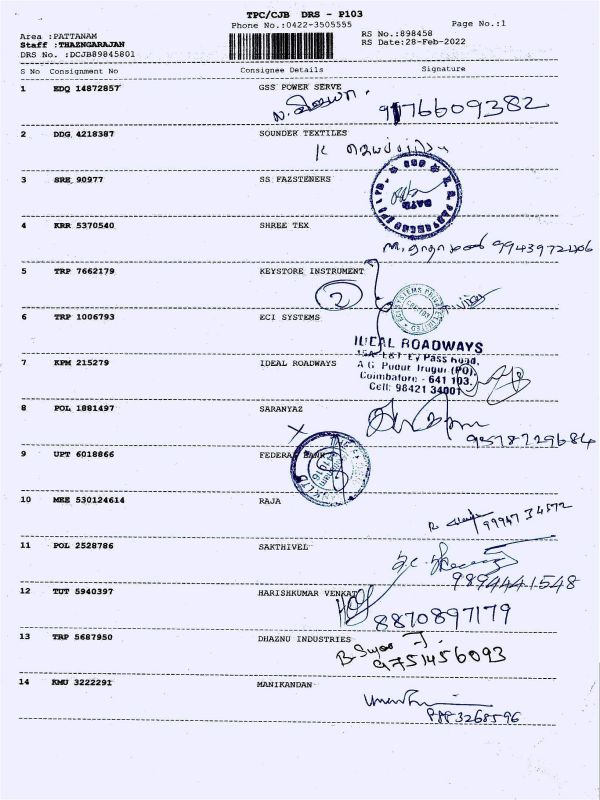 TPC/CJB DRS - P103
Phone No.:0422-3505555
Page No.:1
Area :PATTANAM
RS No.:898458
Staff :THAZNGARAJAN
RS Date:28-Feb-2022
DRS No. :DCJB89845801
S No Consignment No Consignee Details Signature
1 EDQ 14872857 GSS POWER SERVE
9176609382
2 DDG 4218387 SOUNDER TEXTILES
3 SRE 90977 SS FAZSTENERS
4 KRR 5370540 SHREE TEX
9943972206
5 TRP 7662179 KEYSTORE INSTRUMENT
2
6 TRP 1006793 ECI SYSTEMS
IDEAL ROADWAYS
15A L&T By Pass Road,
A G Pudur Irugur (PO),
Coimbatore - 641 103.
Cell: 98421 34001
7 KPM 215279 IDEAL ROADWAYS
8 POL 1881497 SARANYAZ
9578729684
9 UPT 6018866 FEDERAL BANK
10 MEE 530124614 RAJA
11 POL 2528786 SAKTHIVEL
9894441548
12 TUT 5940397 HARISHKUMAR VENKAT
8870897179
13 TRP 5687950 DHAZNU INDUSTRIES
9751456093
14 KMU 3222291 MANIKANDAN